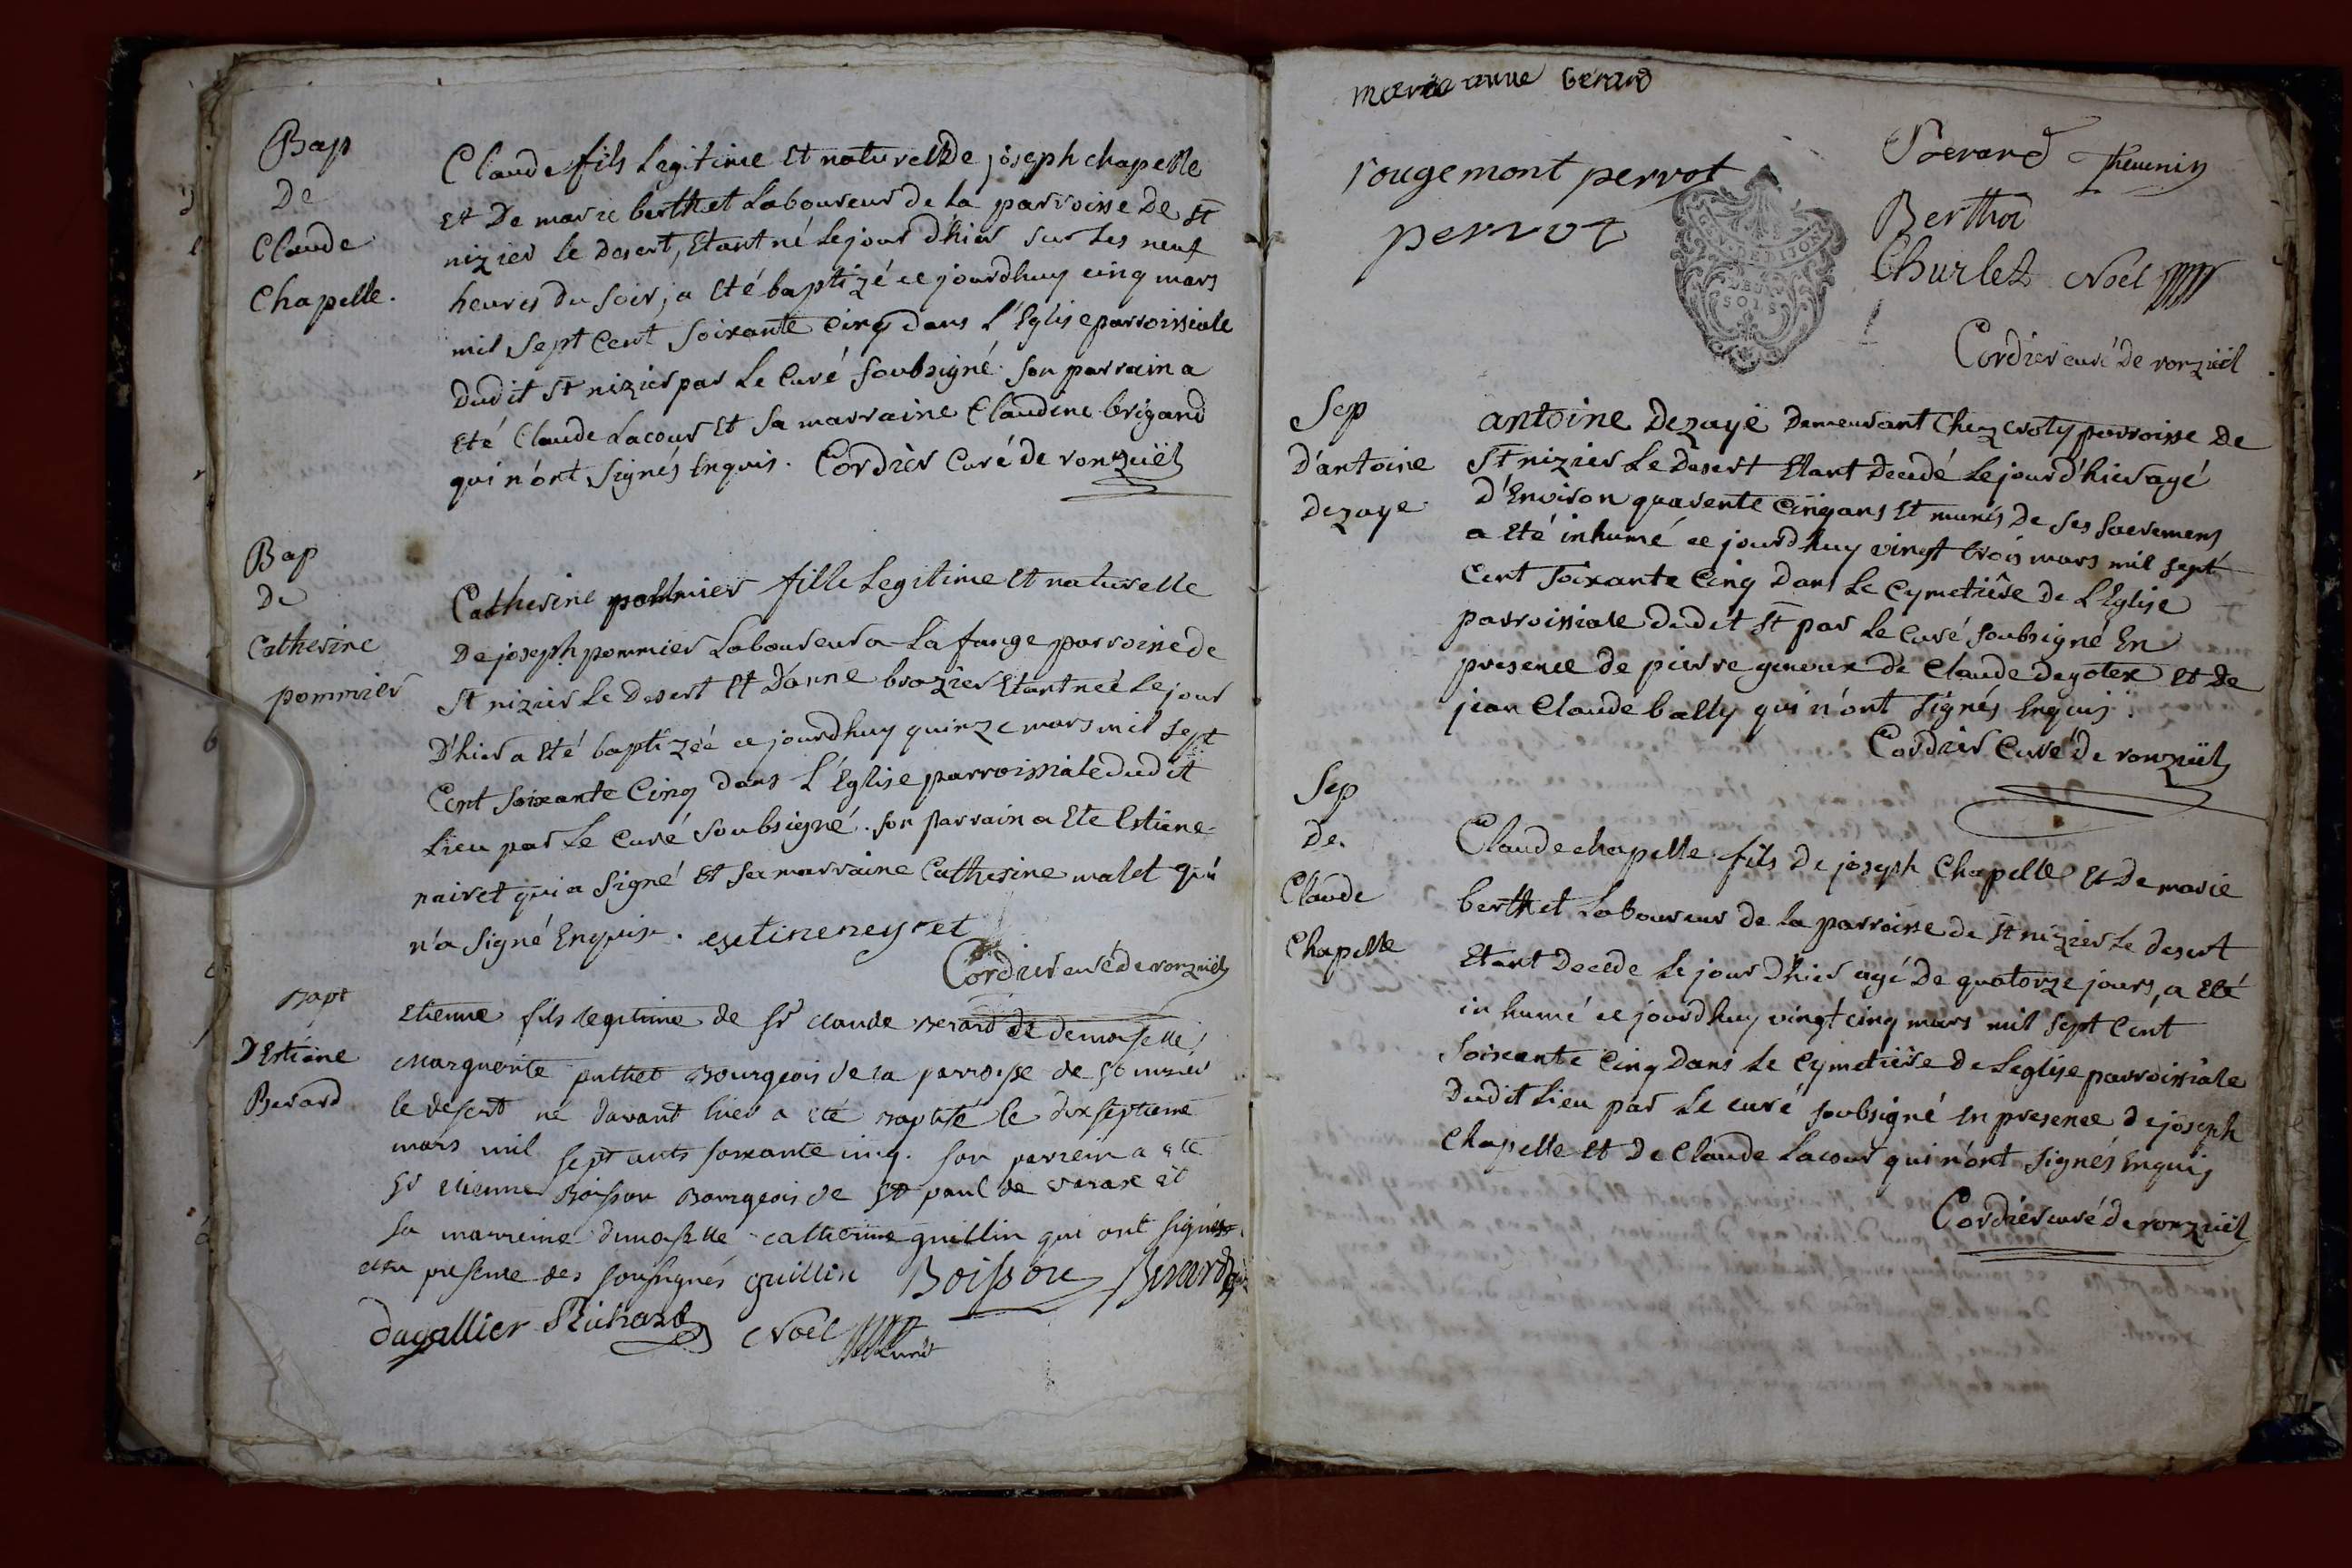 Bap
De
Claude
Chapelle.
Claude fils Legitime Et naturel de joseph chapelle
Et De marie berthet Laboureur de La parroisse De St
nizier le Desert, Etant né Le jour d'hier sur Les neuf
heures du soir, a Eté baptizé ce jourdhuy cinq mars
mil sept Cent soixante Cinq dans L'Eglise parroissiale
Dudit St nizier par Le Curé soubsigné. son parrain a
Eté Claude Lacour Et sa marraine Claudine brigand
qui n'ont signés Enquis. Cordier Curé de ronzuël
Bap
De
Catherine
pommier
Catherine pommier fille Legitime Et naturelle
De joseph pommier Laboureur a La fange parroisse de
St nizier Le Desert Et d'anne brazier Etant neé Le jour
D'hier a Eté baptizéé ce jourdhuy quinze mars mil sept
Cent soixante Cinq dans L'Eglise parroissiale dudit
Lieu par Le Curé soubsigné. son parrain a Eté Estiene
nairet qui a signé Et sa marraine Catherine malet qui
n'a signé Enquise. estineneyret
Cordier curé de ronzuël
Bapt
D'Estiene
Berard
Etienne fils legitime de sr claude Berard et demoiselle
Marguerite puthet Bourgeois de la parroisse de St nizier
le desert né davant hier a eté baptisé le dix septieme
mars mil sept cents soixante cinq. son parrein a eté
sr etienne Boisson Bourgeois de St paul de varax et
sa marreine demoiselle catherine guillin qui ont signés
en presence des soussignés guillin Boisson Berard
Dagallier Richard Noel curé
marie anne berard
rougemont perrot
perrot
Berard Thevenin
Berthod
Churlet Noel
Cordier curé De ronzuël
GENERAL
DEUX
SOLS
Sep
D'antoine
Dezaye
antoine Dezaye Demeurant Chez croty parroisse De
St nizier Le Desert Etant Decedé Le jour d'hier agé
D'Environ quarente Cinq ans Et munis De ses sacremens
a Eté inhumé ce jourdhuy vingt trois mars mil sept
Cent soixante Cinq Dans Le Cymetière De L'Eglise
parroissiale Dudit St par Le Curé soubsigné En
presence De pierre geneux De Claude Degotex Et De
jean Claude bally qui n'ont signés Enquis.
Cordier Curé De ronzuël
Sep
De
Claude
Chapelle
Claude chapelle fils De joseph Chapelle Et De marie
berthet Laboureur de La parroisse de St nizier Le desert
Etant Decede Le jour D'hier agé De quatorze jours, a Eté
inhumé ce jourdhuy vingt cinq mars mil sept Cent
soixante Cinq Dans Le Cymetière De Leglise parroissiale
Dudit Lieu par Le curé soubsigné En presence De joseph
Chapelle Et De Claude Lacour qui n'ont signés Enquis
Cordier curé de ronzuël